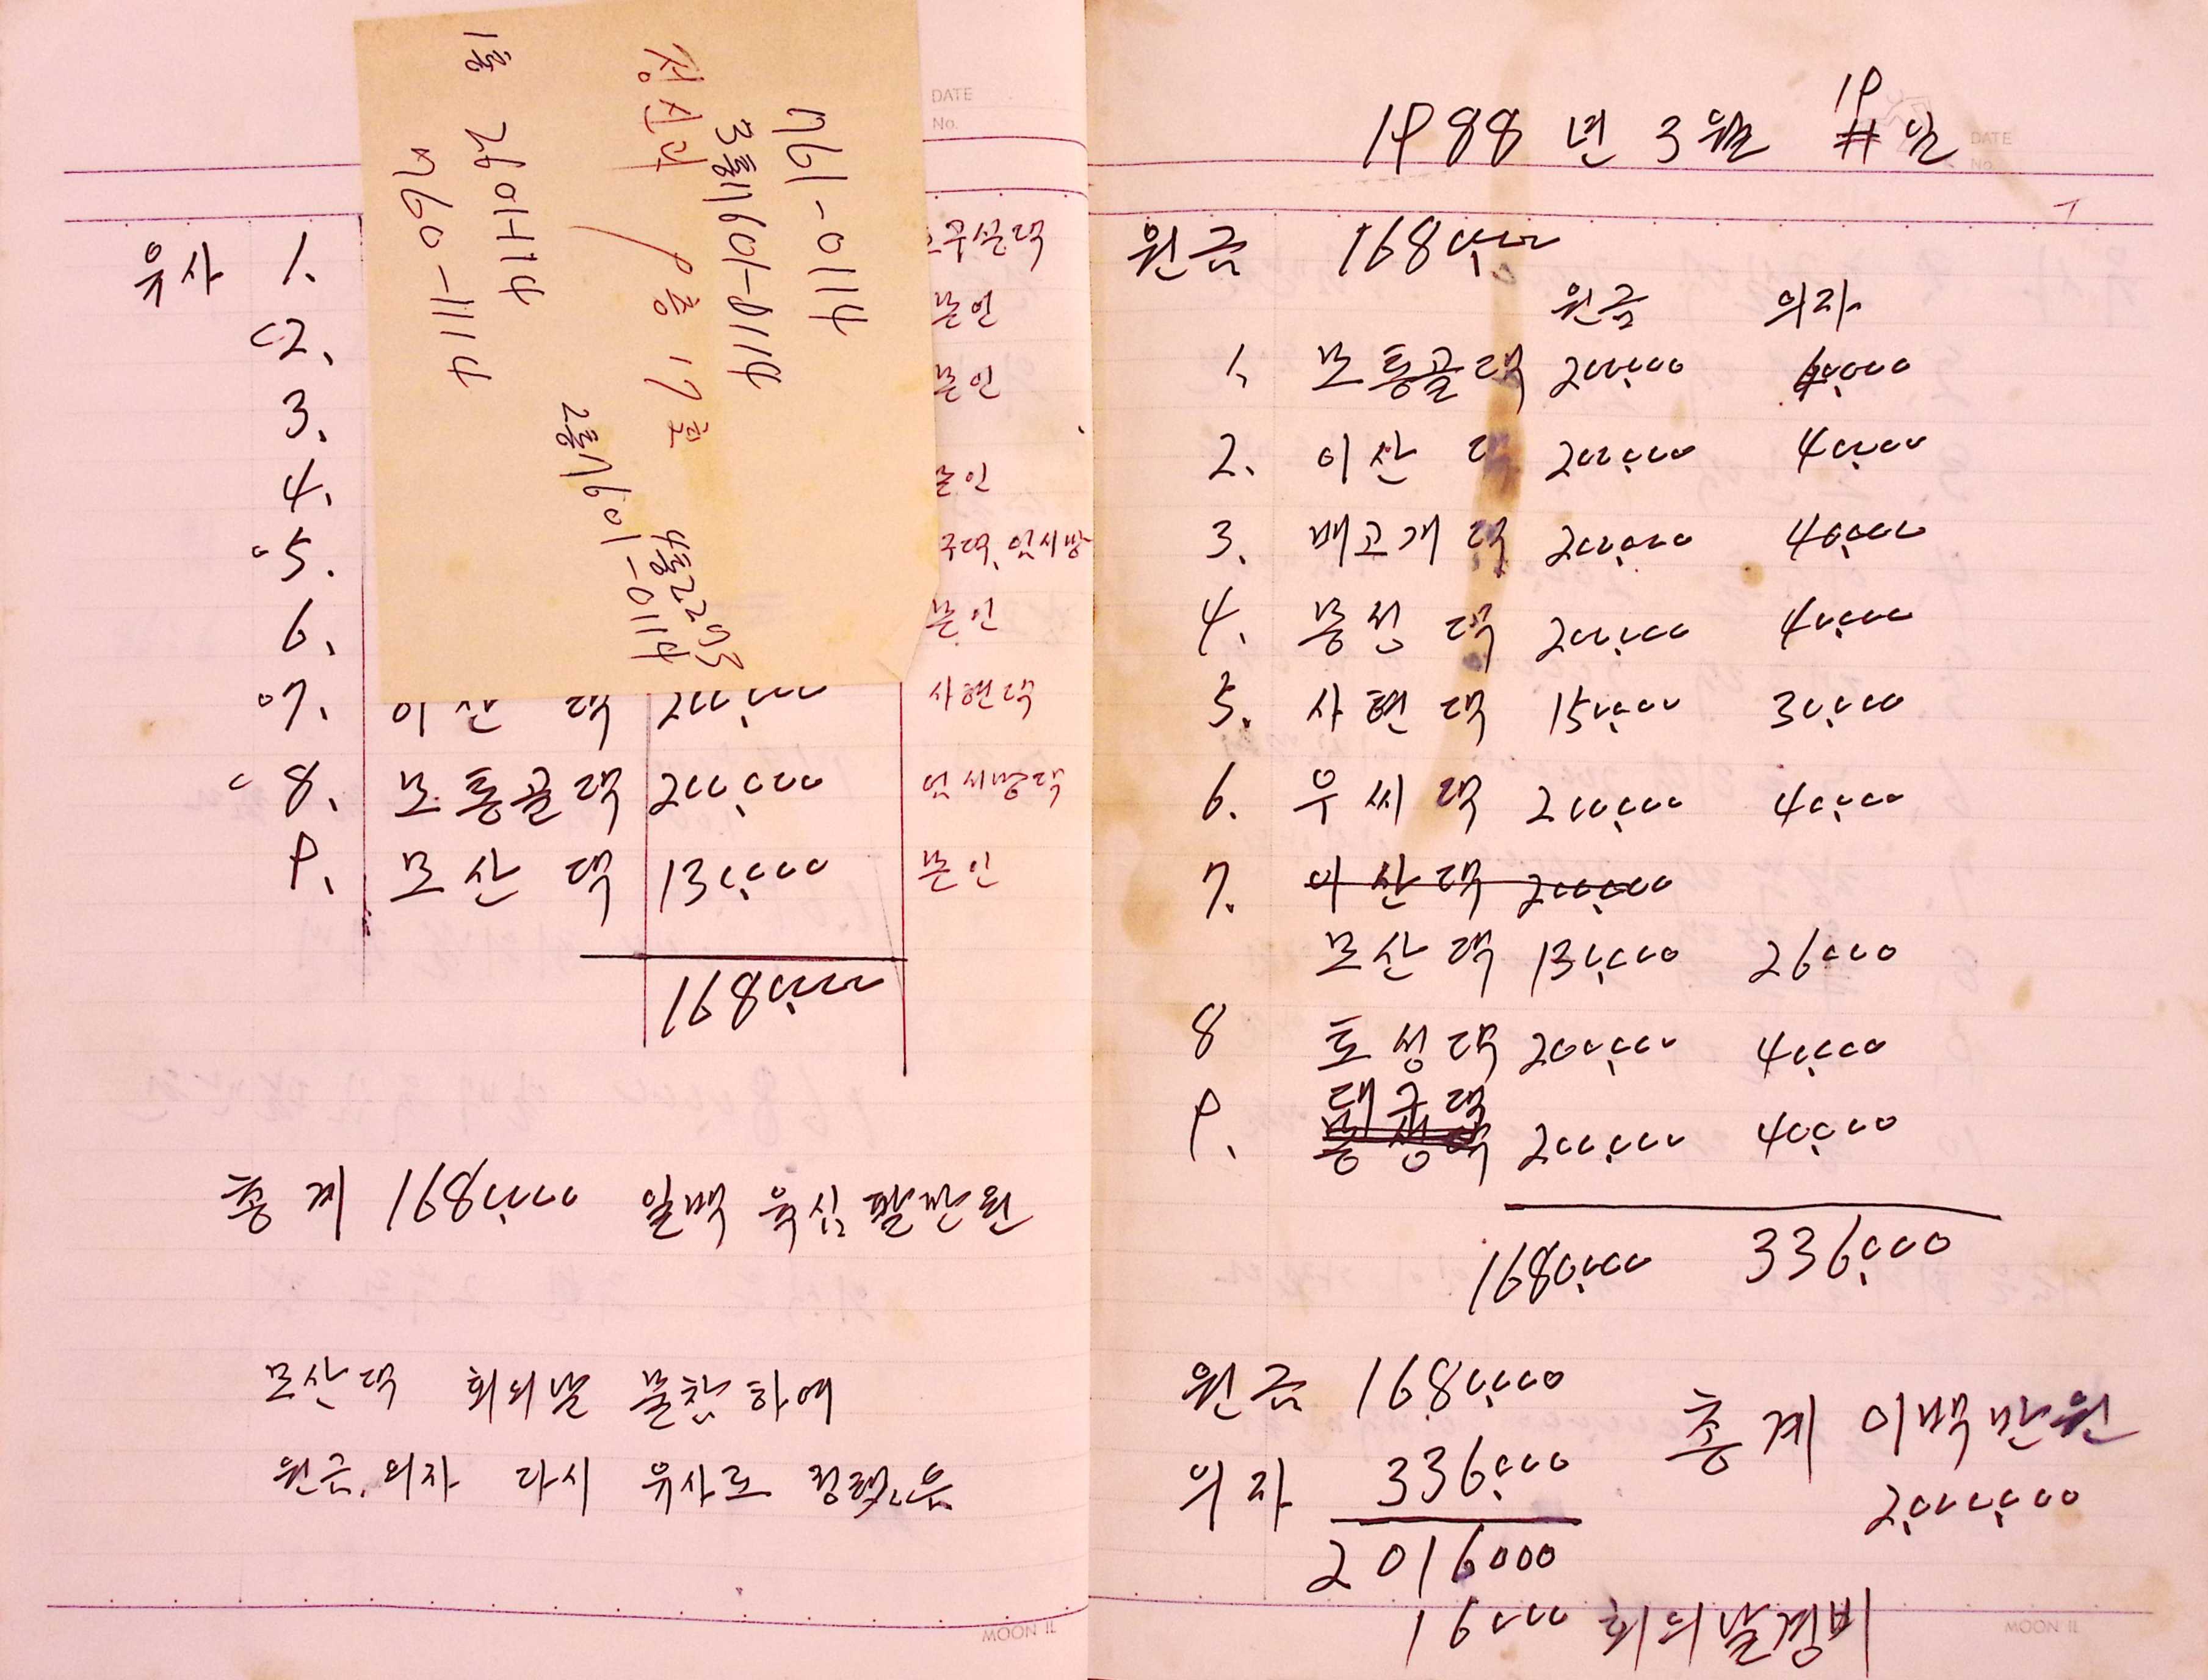 DATE
No.
유사 1.
2.
3.
4.
5.
6.
7. 이산댁 200,000 사현댁
8. 모통골댁 200,000 엄서방댁
9. 모산댁 130,000 본인
1680,000
총계 1680,000 일백육십팔만원
모산댁 회의날 불참하여
원금, 의자 다시 유사로 정했음
MOON IL
본인
본인
본인
본인
761-0114
3동 1601-0114
정신과
9층 17호
1동 260-1114
760-1114
2동 1601-0114
DATE
No.
1988년 3월 19일
원금 1680,000
원금 의자
1. 모통골댁 200,000 40,000
2. 이산댁 200,000 40,000
3. 배고개댁 200,000 40,000
4. 봉성댁 200,000 40,000
5. 사현댁 150,000 30,000
6. 우씨댁 200,000 40,000
7. 이산댁 200,000
모산댁 130,000 26,000
8 토성댁 200,000 40,000
대구댁
9. 200,000 40,000
1680,000 336,000
원금 1680,000
총계 이백만원
의자 336,000
2,000,000
2016000
16,000 회의날경비
MOON IL